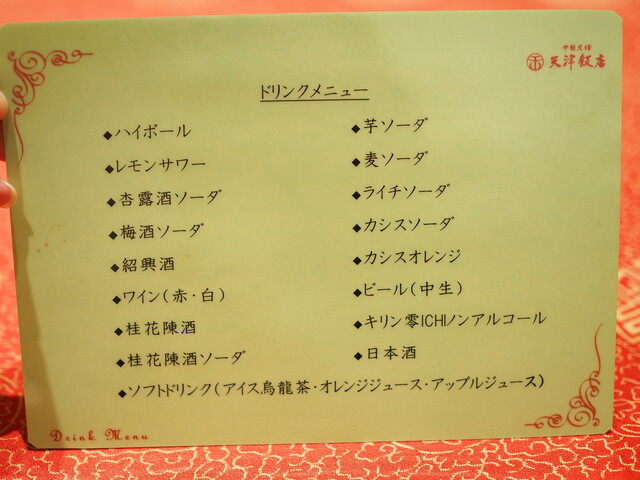 中国老舗
天津飯店
ドリンクメニュー
◆ハイボール
◆レモンサワー
◆杏露酒ソーダ
◆梅酒ソーダ
◆紹興酒
◆ワイン(赤・白)
◆桂花陳酒
◆桂花陳酒ソーダ
◆芋ソーダ
◆麦ソーダ
◆ライチソーダ
◆カシスソーダ
◆カシスオレンジ
◆ビール(中生)
◆キリン零ICHIノンアルコール
◆日本酒
◆ソフトドリンク(アイス烏龍茶・オレンジジュース・アップルジュース)
Drink Menu